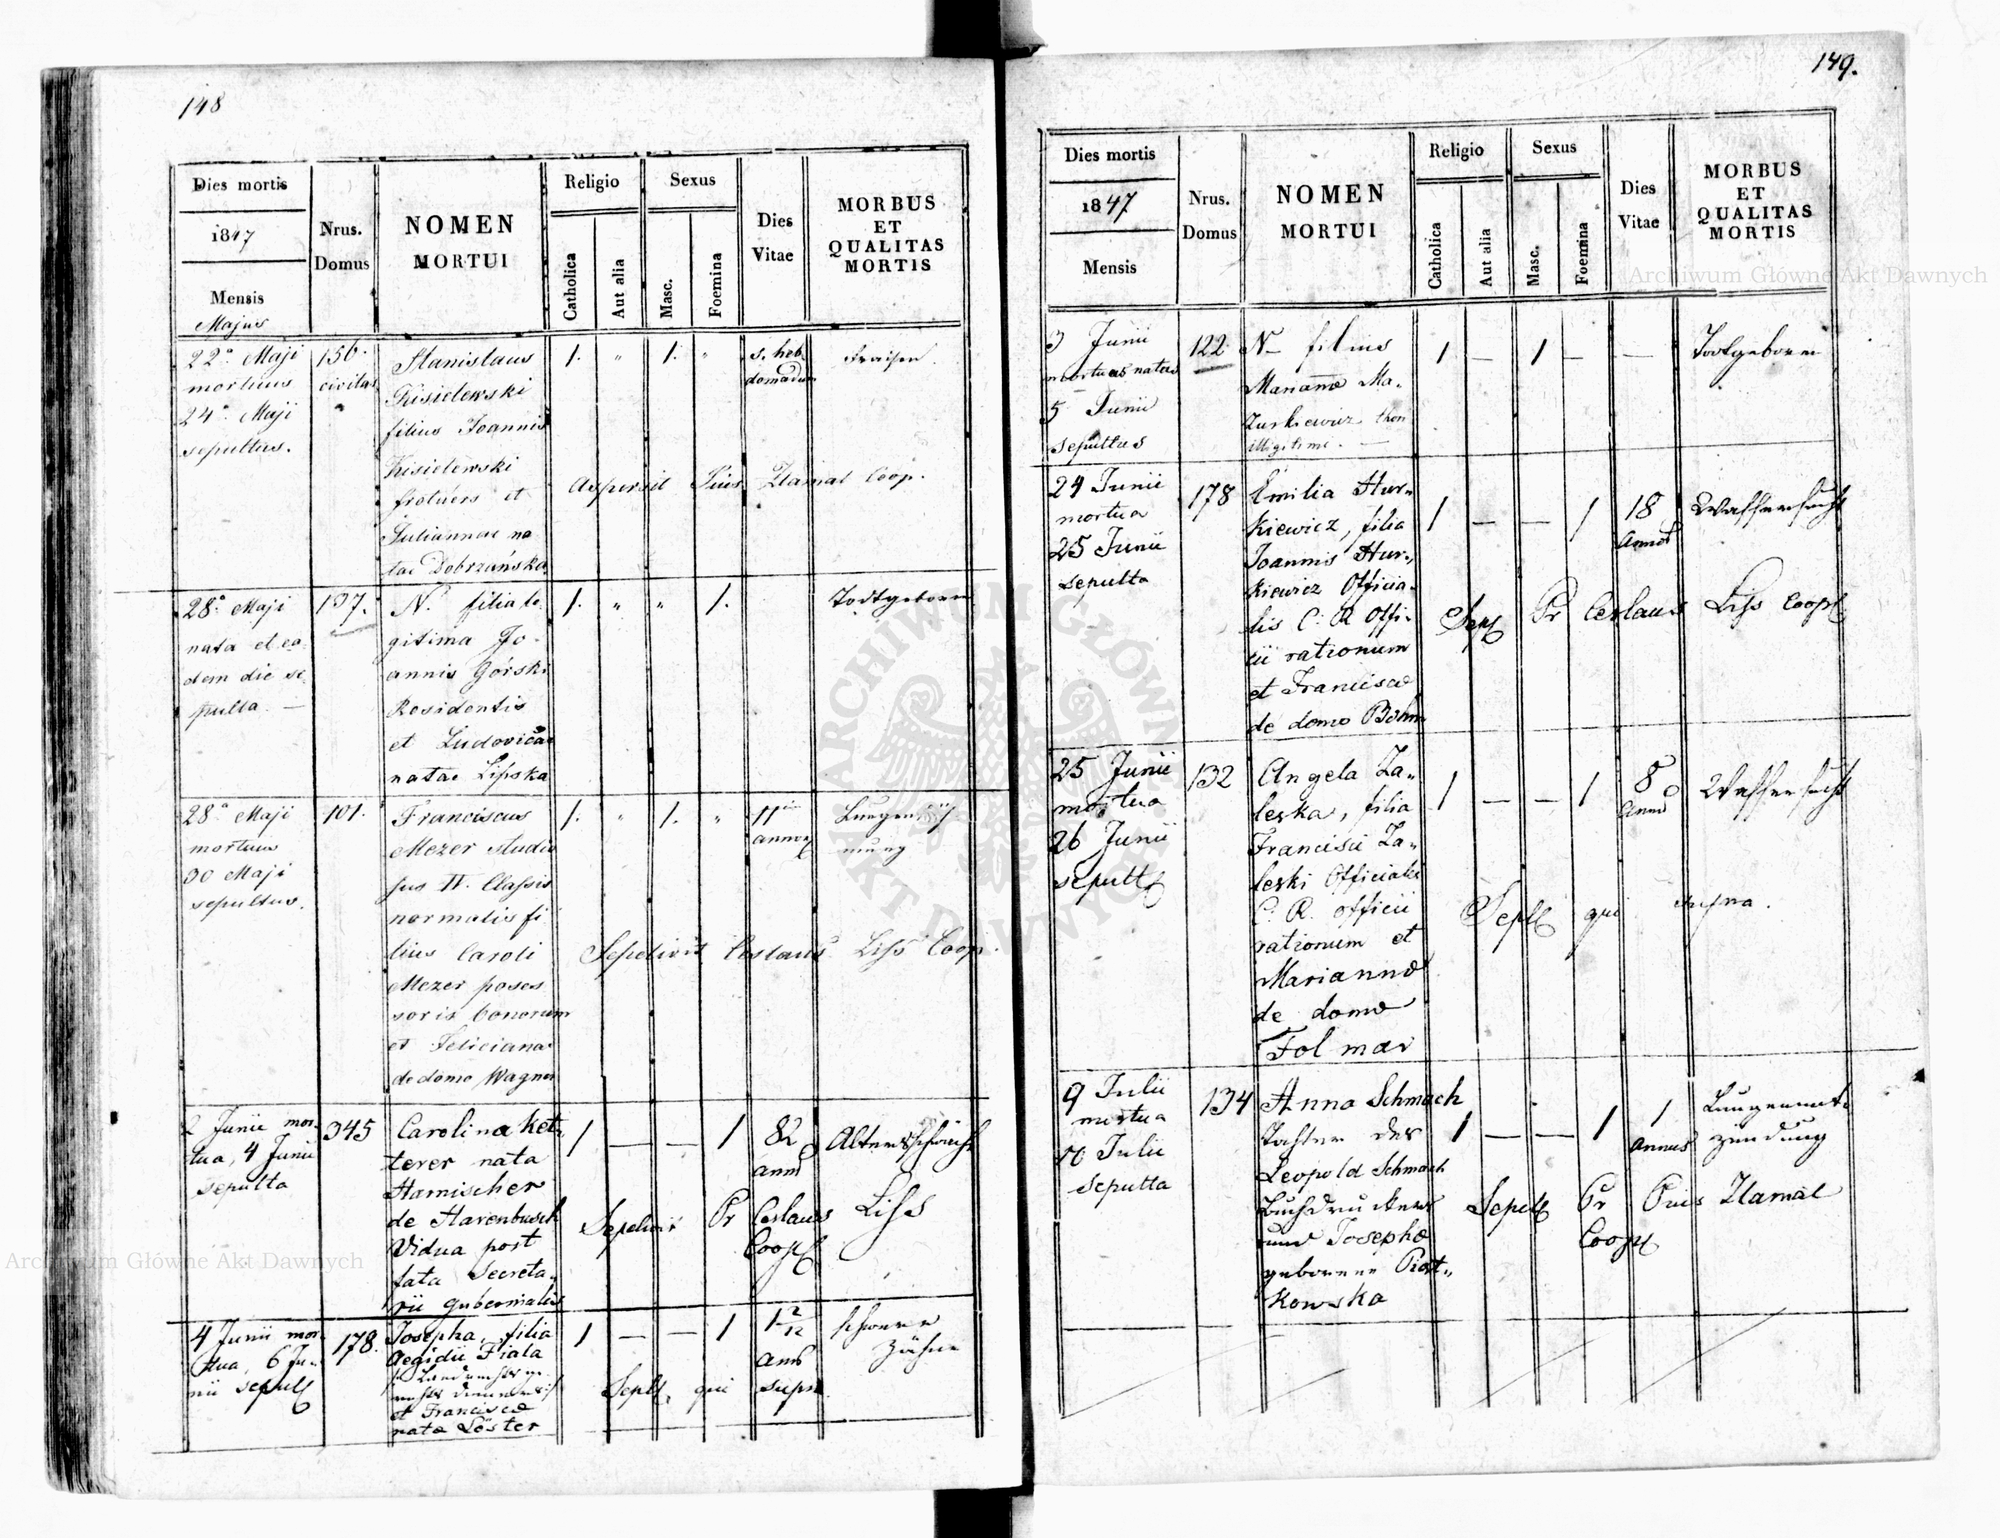 148
Dies mortis
1847
Mensis
Majus
Nrus.
Domus
NOMEN
MORTUI
Religio
Catholica
Aut alia
Sexus
Masc.
Foemina
Dies
Vitae
MORBUS
ET
QUALITAS
MORTIS
22a Maji
mortuus
24a Maji
sepultus.
156.
civitas
Stanislaus
Kisielewski
filius Joannis
Kisielewski
et
Juliannae na
tae Dobrzańska
1. " 1. "
5. heb
domadum
Fraisen.
Aspersit Pius Zlamal Coop.
28a Maji
nata et eo
dem die se
pulta. —
137.
N. filia le
gitima Jo-
annis Górski
Residentis
et Ludovicae
natae Lipska
1. " " 1.
Todtgeboren
28a Maji
mortuus
30 Maji
sepultus.
101.
Franciscus
Mezer studio
sus II. Classis
normalis fi
lius Caroli
Mezer poses
soris bonorum
et Feliciana
de domo Wagner
1. " 1. "
11
annor
Sepelivit Ceslaus Liss Coop.
2 Junii mor-
tua, 4 Junii
sepulta
345
Carolina Ket-
terer nata
Harnischer
de Harenbusch
Vidua post
fata Secreta-
rii gubernialis
1 — — 1
82
anno
Altersschwäche
Sepelivit Pr Ceslaus Liss
Coop
4 Junii mor-
tua, 6 Ju-
nii sepult
178.
Josepha, filia
Aegidii Fiala
et Franciscae
nata Löster
1 — — 1
1 2/12
ann
schwere
Zähne
Sepel. qui supra
149.
Dies mortis
1847
Mensis
Nrus.
Domus
NOMEN
MORTUI
Religio
Catholica
Aut alia
Sexus
Masc.
Foemina
Dies
Vitae
MORBUS
ET
QUALITAS
MORTIS
3 Junii
mortuus natus
5 Junii
sepultus
122
N— filius
Mariannae Ma-
zurkiewicz thori
illegitimi. —
1 — 1 — —
Todtgeboren
24 Junii
mortua
25 Junii
sepulta
178
Emilia Hur-
kiewicz, filia
Joannis Hur-
kiewicz Officia-
lis C. R. Offi-
cii rationum
et Franciscae
de domo Böhm
1 — — 1
18
Annor
Wassersucht
Sepel Pr Ceslaus Liss Coop
25 Junii
mortua
26 Junii
sepult
132
Angela Za-
leska, filia
Francisci Za-
leski Officialis
C. R. officii
rationum et
Mariannae
de domo
Folmar
1 — — 1
8
Anno
Wassersucht
Sepel qui supra.
9 Julii
mortua
10 Julii
sepulta
134
Anna Schmach
Tochter des
Leopold Schmach
Buchdruckers
und Josepha
geborene Piat-
kowska
1 — — 1
1
Annus
Lungenent-
zündung
Sepel Pr Pius Zlamal
Coop
Archiwum Główne Akt Dawnych
Archiwum Główne Akt Dawnych
ARCHIWUM GŁÓWNE AKT DAWNYCH